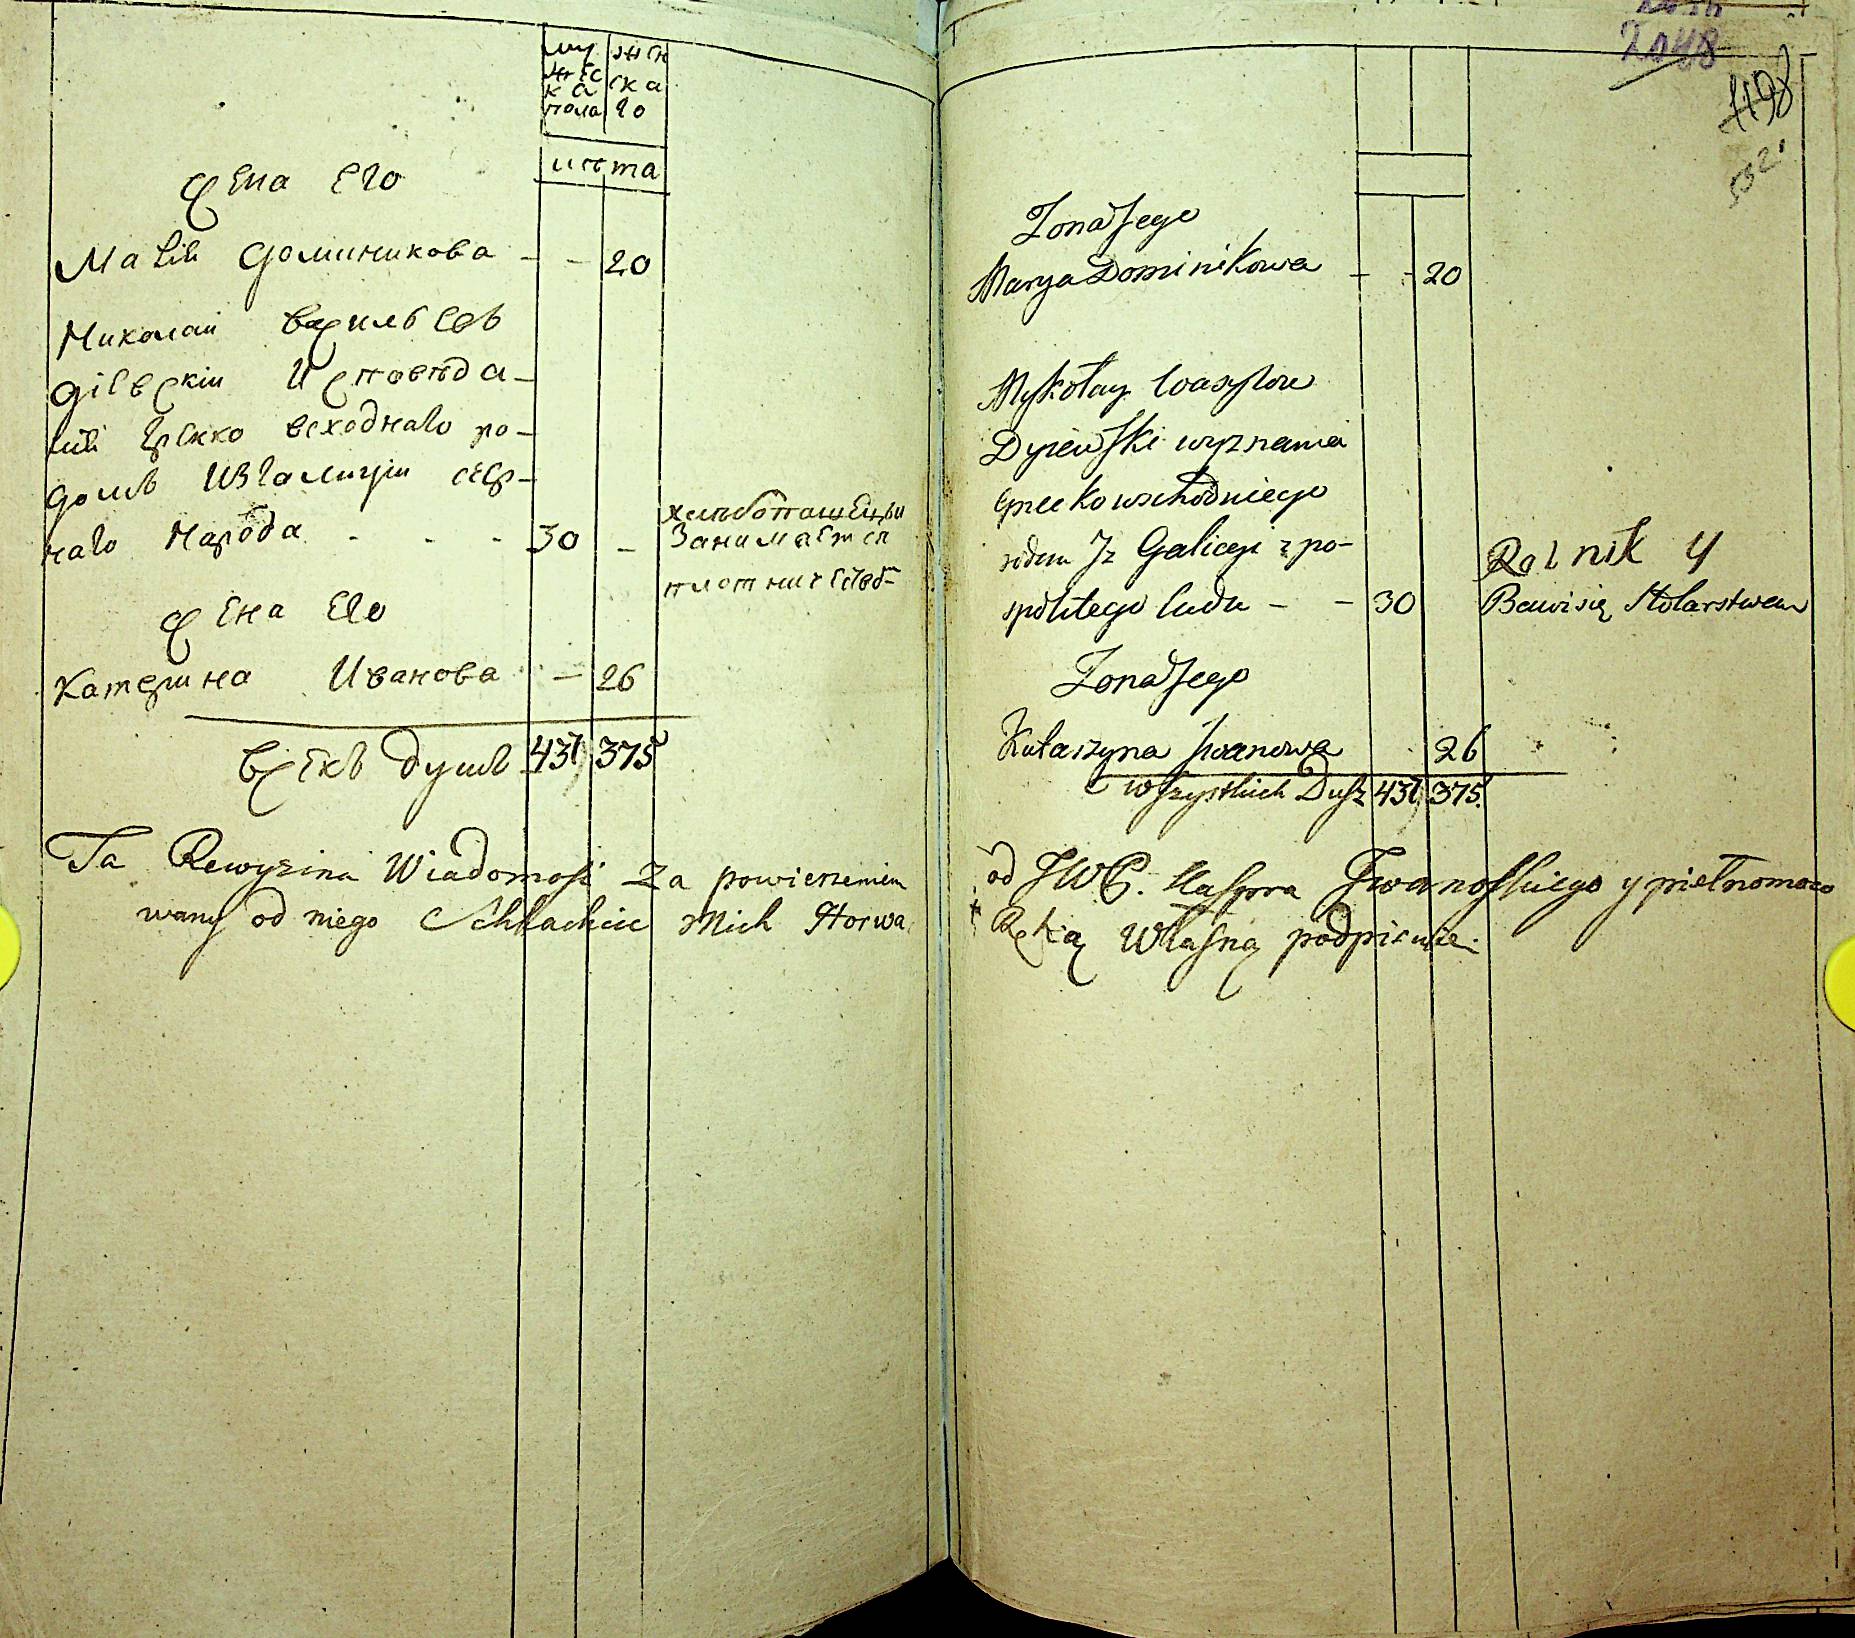 муж жен
жес ска
ка го
пола
лѣта
жена его
Маря Доминикова - - 20
Николай Васильевъ
Дієвскій Исповѣда-
нія Греко Всходнаго ро-
домъ Изъ Галиціи сер-
наго Народа - - - 30 -
хлѣбопашецъ и
Занимается
плотничествомъ
жена Его
Катерина Иванова - 26
Всехъ душъ 437 375
Ta Rewyzina Wiadomosc Za powierzeniem
wany od niego Schlachcic Mich Horwa
2048
498
Zona Jego
Marya Dominikowa - - 20
Mykołay Wasylow
Dyiewski wyznania
Greckowschodniego
rodem Jz Galicyi z po-
spolitego ludu - - 30
Rolnik y
Bawi się Stolarstwem
Zona Jego
Katarzyna Jwanowa 26
Wszystkich Dusz 437 375
od JWP. Kaspra Jwanoskiego y pielnomoco
Ręką Własną podpisuie.